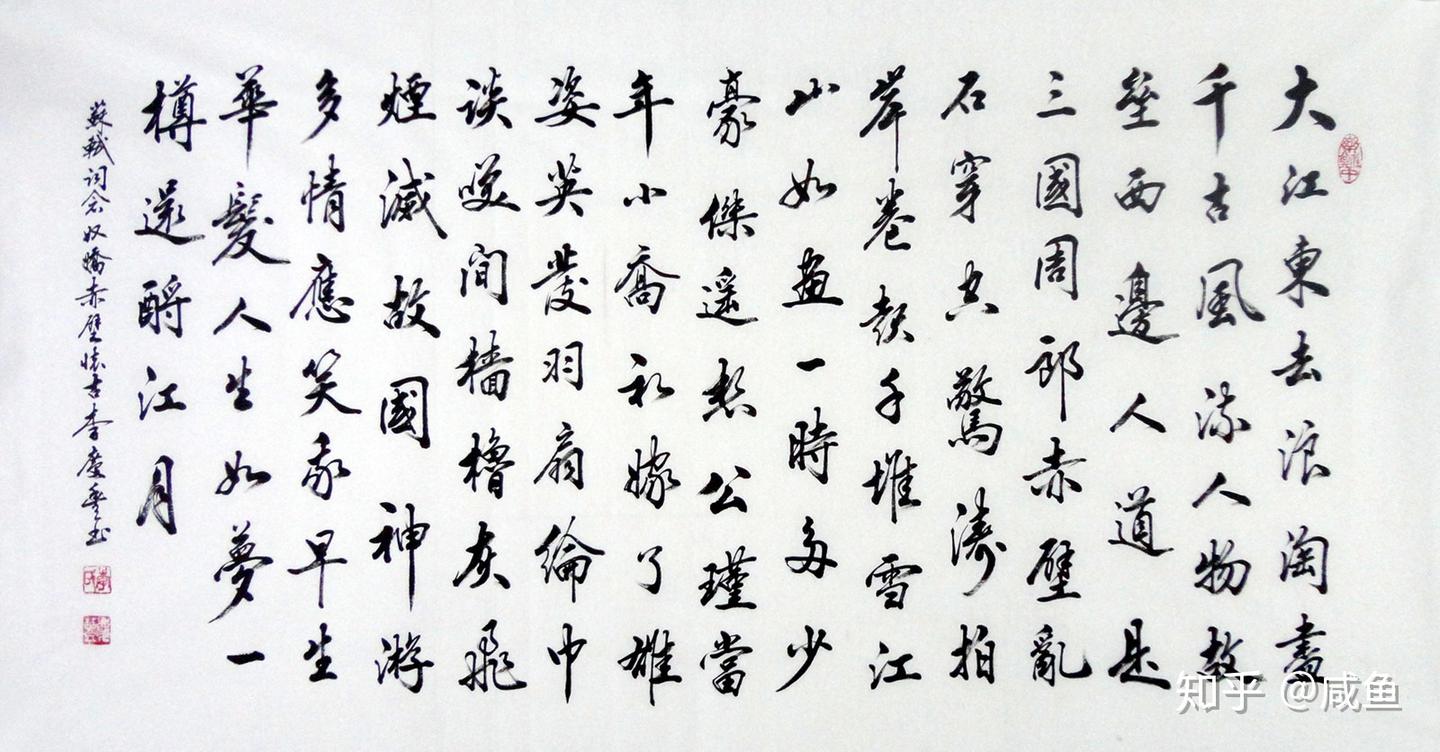 大江東去浪淘盡
千古風流人物故
壘西邊人道是
三國周郎赤壁亂
石穿空驚濤拍
岸卷起千堆雪江
山如畫一時多少
豪傑遥想公瑾當
年小喬初嫁了雄
姿英發羽扇綸巾
談咲間檣櫓灰飛
煙滅故國神游
多情應笑我早生
華髮人生如夢一
樽還酹江月
蘇軾詞念奴嬌赤壁懷古李慶
知乎 @咸鱼